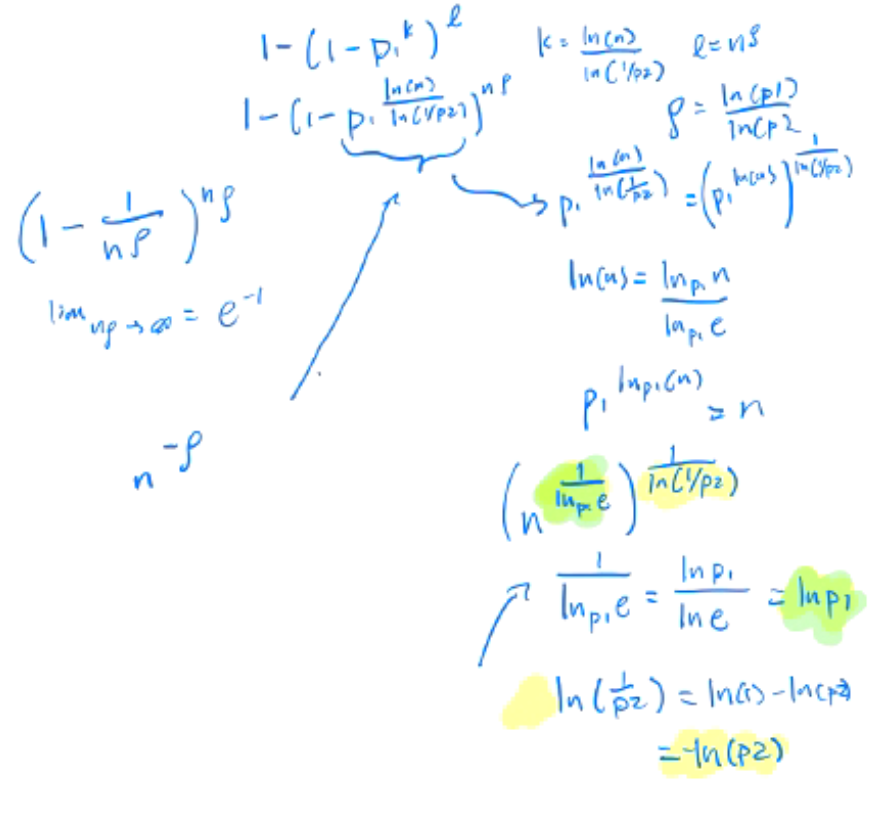 1-(1-p₁^k)^ℓ    k = ln(n)/ln(1/p2)    ℓ = n^ρ
1-(1-p₁^(ln(n)/ln(1/p2)))^(n^ρ)    ρ = ln(p1)/ln(p2
p₁^(ln(n)/ln(1/p2)) = (p₁^(ln(n)))^(1/ln(1/p2))
(1 - 1/n^ρ)^(n^ρ)
lim nρ→∞ = e^-1
ln(n) = ln_p₁ n / ln_p₁ e
p₁^(ln_p₁(n)) = n
n^-ρ
(n^(1/ln_p₁ e))^(1/ln(1/p2))
1/ln_p₁ e = ln p₁/ln e = ln p1
ln(1/p2) = ln(1) - ln(p2)
= -ln(p2)